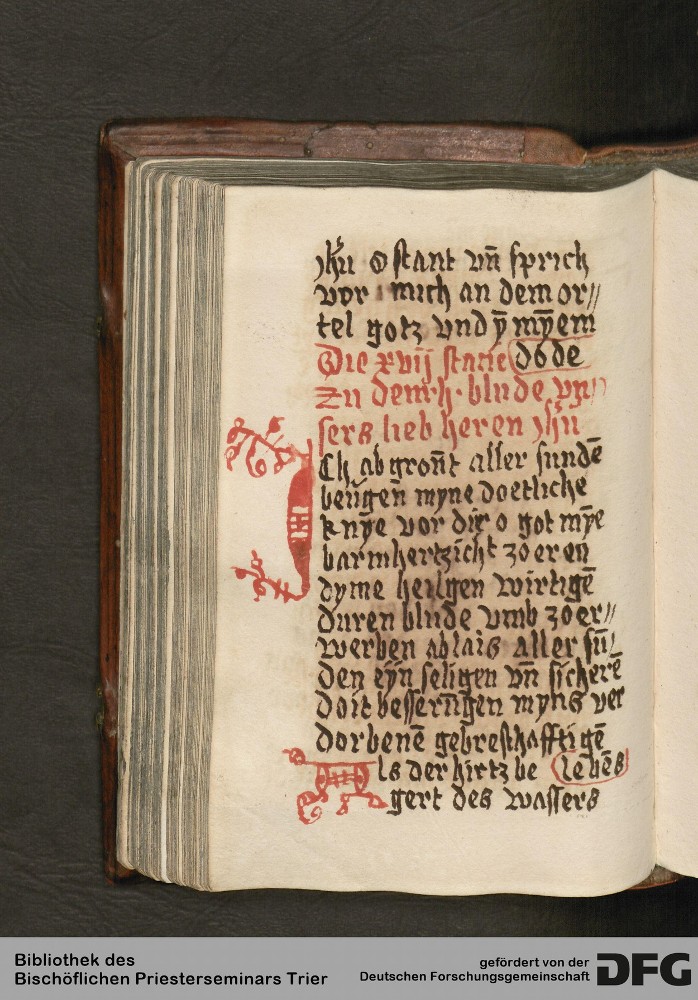 jhu o stant vn̄ sprich
vor mich an dem or//
tel gotz vnd ȳ mȳem
Die xvij statie dode
Zu dem h. blude vn//
sers lieb heren jhu
Ich abgront aller sundē
beügen myne doetliche
knȳe vor dir o got mȳe
barmhertzicht zo eren
dyme heilgen wirtigē
duren blude vmb zo er//
werben ablais aller sū/
den eyn seligen vn̄ sicherē
doit besserūgen myns ver
dorbenē gebresthafftigē
Als der hirtz be lebēs
gert des wassers
Bibliothek des
Bischöflichen Priesterseminars Trier
gefördert von der
Deutschen Forschungsgemeinschaft
DFG